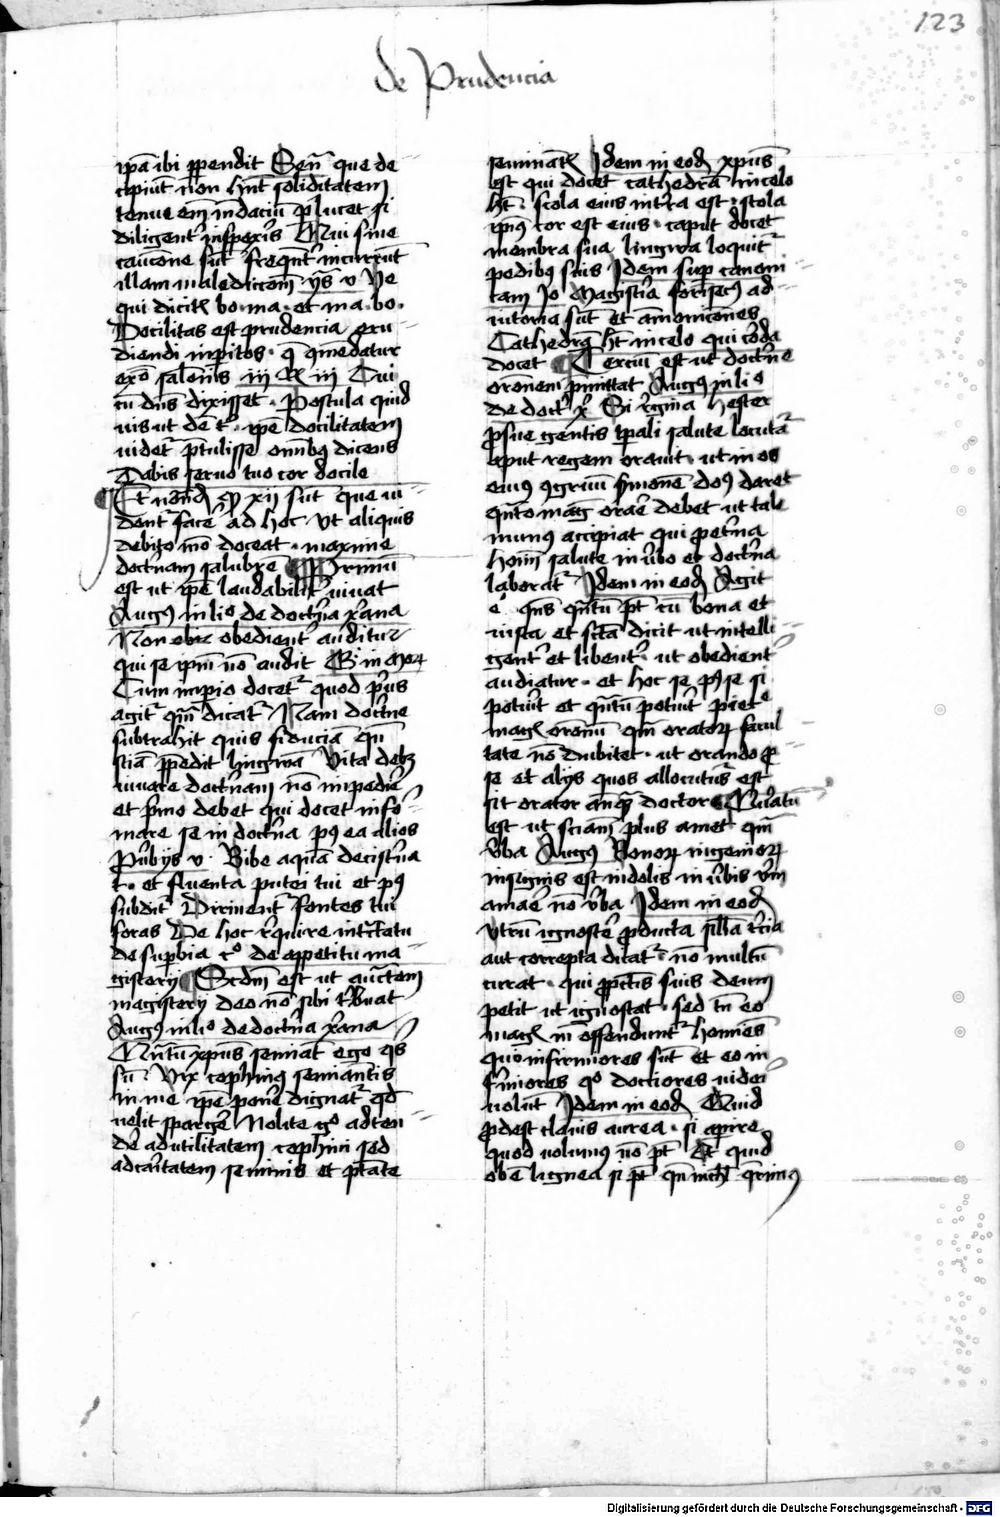 123
de Prudencia
ip̄a ibi ꝑpendit Sen̄ que de
cipiūt non hn̄t soliditatem
tenue em̄ mēdaciū ꝑlucet si
diligent̄ inspexer̄s Qui sine
caucōne sūt freqn̄t̄ incurrūt
illam maledictōem ys̄ v Ve
qui dicit̄ bo · ma · et ma · bo ·
Docilitas est prudencia eru
diendi inperitos · q̄ 9mēdatur
exō salōnis iij R iij Cui
cū dn̄s dixisset · Postula quid
uis ut dē t̄ · ip̄e docilitatem
uidet̄ p̄tulisse omībꝫ dicens
Dabis seruo tuo cor docile
Et nōnd̄ ꝙ xij sūt que ui
dent̄ facē ad hoc · vt aliquis
debito mō doceat · maxime
doct̄nam salubre Primū
est ut ip̄e laudabilit̄ uiuat
Augꝰ in li° de doct̄na x̄ana
Non obedient̄ auditur
qui se ip̄m nō audit G̅ in Moꝝ
Cum inperio docet̄ quod p̄us
agit̄ qm̄ dicat̄ Nam doct̄ne
subtrahit quis fiduciā qn̄
sciā ꝑpedit lingwā Vita debꝫ
iuuare doct̄nam nō inpedir̄
et p̄mo debet qui docet infor
mare se in doct̄na pꝰ ea alios
Ꝓu̅bijs v · Bibe aquā decist̄na
t · et fluenta putei tui et pꝰ
subdit̄ Diriuent̄ fontes tui
foras De hoc r̄quire int̄ctatu
de supbia c° de appetitu ma
gisterij Scdm̄ est ut auctem
magisterij deo nō sibi t̄buat
Augꝰ in li° de doct̄na x̄ana
Nūtū xp̄us semināt ego qs̄
sū · Vix cophinꝰ seminantis
in me ip̄e ponē dignat̄ qd̄
uelit spargē Nolite g° adten
dē ad utilitatem cophini sed
ad caritatem seminis et ptāte
seminat̄ Idem in eod̄ xp̄us
est qui docet cathedrā in celo
ht̄ · scola eius in t̄ra est · scola
ip̄iꝰ cor est eius · caput docet
membra sua lingwa loquit̄
pedibꝰ suis Idem sup canoni
cam Jo Magist̄ia forīsecꝰ ad
iutoria sūt et amonicōnes
Cathedrā ht̄ in celo qui corda
docet Terciū est ut doct̄ne
orōnem p̄mittat Augꝰ in li°
de doct̄ x̄ Si r̄gīna Hester
ꝓ sue gentis tpali salute locutā
aput regem orauit · ut in os
eius 9gruū s̄monē dꝰs daret
qn̄to mag̅ orāe debet ut tale
munꝰ accipiat qui ꝑet̄na
homīm salute in ūbo et doct̄na
laborat̄ Idem in eod̄ Agit
ē qn̄s qn̄tū pt̄ cū bona et
iusta et scta dicit ut intelli
gent̄ et libent̄ · ut obedient̄
audiatur · et hoc se pꝰse si
potuīt et qn̄tū potuīt piet°
mag̅ orōnū qm̄ oratoꝝ facul
tate nō dubitet · ut orando ꝓ
se et alijs quos allocutuꝰ est
sit orator anq̄ doctor Quartū
est ut sciam plus amet qm̄
v̄ba Augꝰ Bonoꝝ ingenioꝝ
insignis est indolis in ūbis v̄m
amāe nō v̄ba Idem in eod̄
Vtrū ignoscē ꝓducta silla t̄cia
aut correpta dicat̄ nō multū
curat · qui ꝑctis suis deum
petit ut ignoscat · sed tn̄ eo
mag̅ in offendunt̄ homīes
quo infirmiores sūt Et eo in
f̄miores q° doctiores uidei
uolūt Idem in eod̄ Quid
ꝓdest clauis aurea · si apire
quod uolumꝰ nō pt̄ Et quid
obē lignea si pt̄ qn̄ nichil q̄rimꝰ
Digitalisierung gefördert durch die Deutsche Forschungsgemeinschaft · DFG